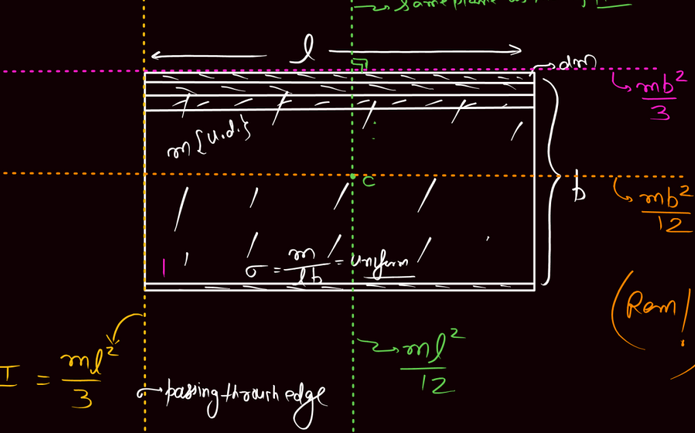 same plane as
l
dm
mb²/3
m{u.d.}
C
b
mb²/12
σ = m/lb = uniform
(Rem!
I = ml²/3
ml²/12
passing through edge